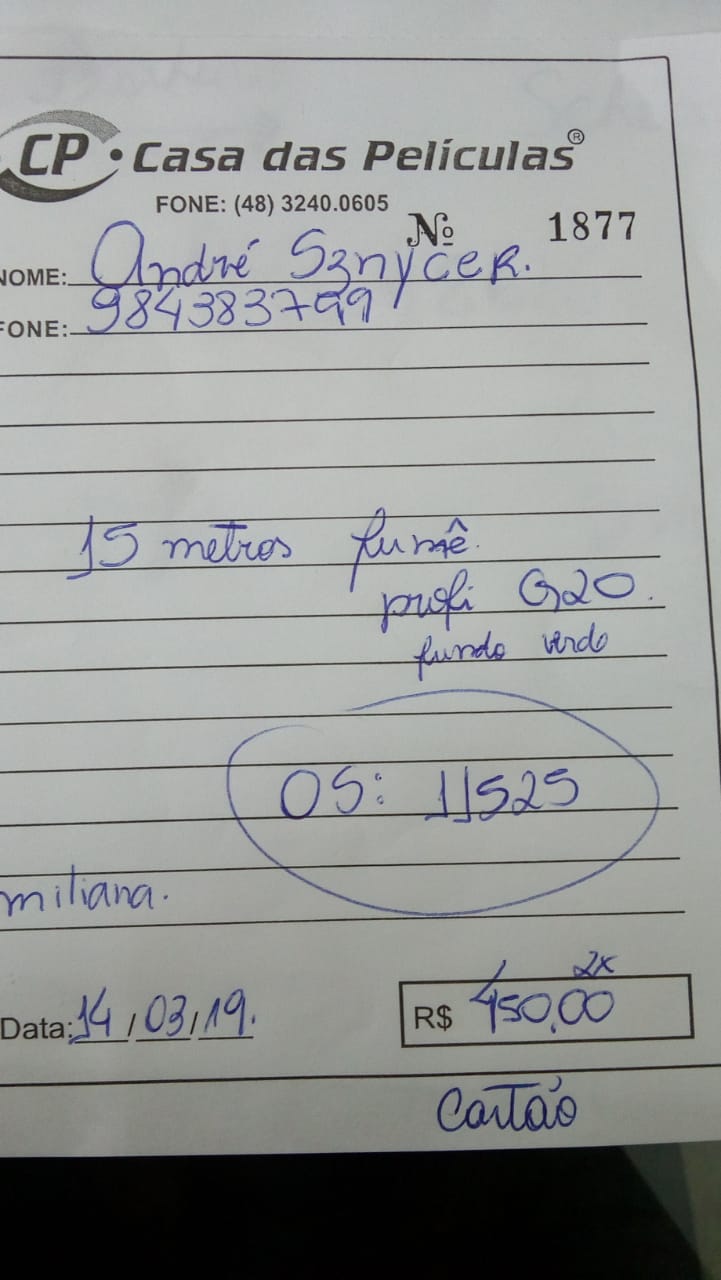 CP • Casa das Películas®
FONE: (48) 3240.0605
Nº 1877
NOME: André Sznycer.
FONE: 984383799
15 metros fumê.
profi G20.
fundo verde
OS: 11525
miliana.
2x
Data: 14/03/19. R$ 450,00
Cartão